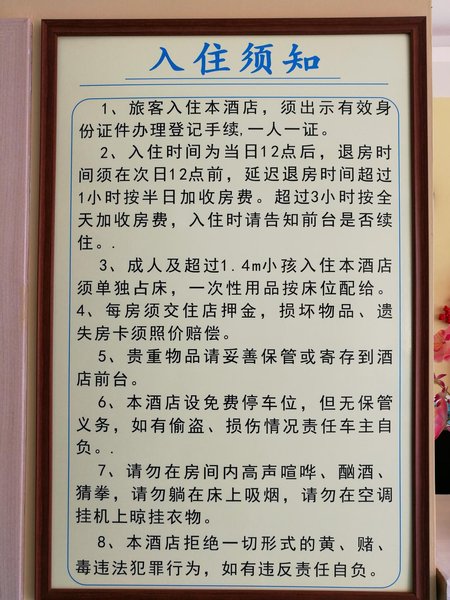 入住须知
1、旅客入住本酒店，须出示有效身
份证件办理登记手续,一人一证。
2、入住时间为当日12点后，退房时
间须在次日12点前，延迟退房时间超过
1小时按半日加收房费。超过3小时按全
天加收房费，入住时请告知前台是否续
住。.
3、成人及超过1.4m小孩入住本酒店
须单独占床，一次性用品按床位配给。
4、每房须交住店押金，损坏物品、遗
失房卡须照价赔偿。
5、贵重物品请妥善保管或寄存到酒
店前台。
6、本酒店设免费停车位，但无保管
义务，如有偷盗、损伤情况责任车主自
负。.
7、请勿在房间内高声喧哗、酗酒、
猜拳，请勿躺在床上吸烟，请勿在空调
挂机上晾挂衣物。
8、本酒店拒绝一切形式的黄、赌、
毒违法犯罪行为，如有违反责任自负。